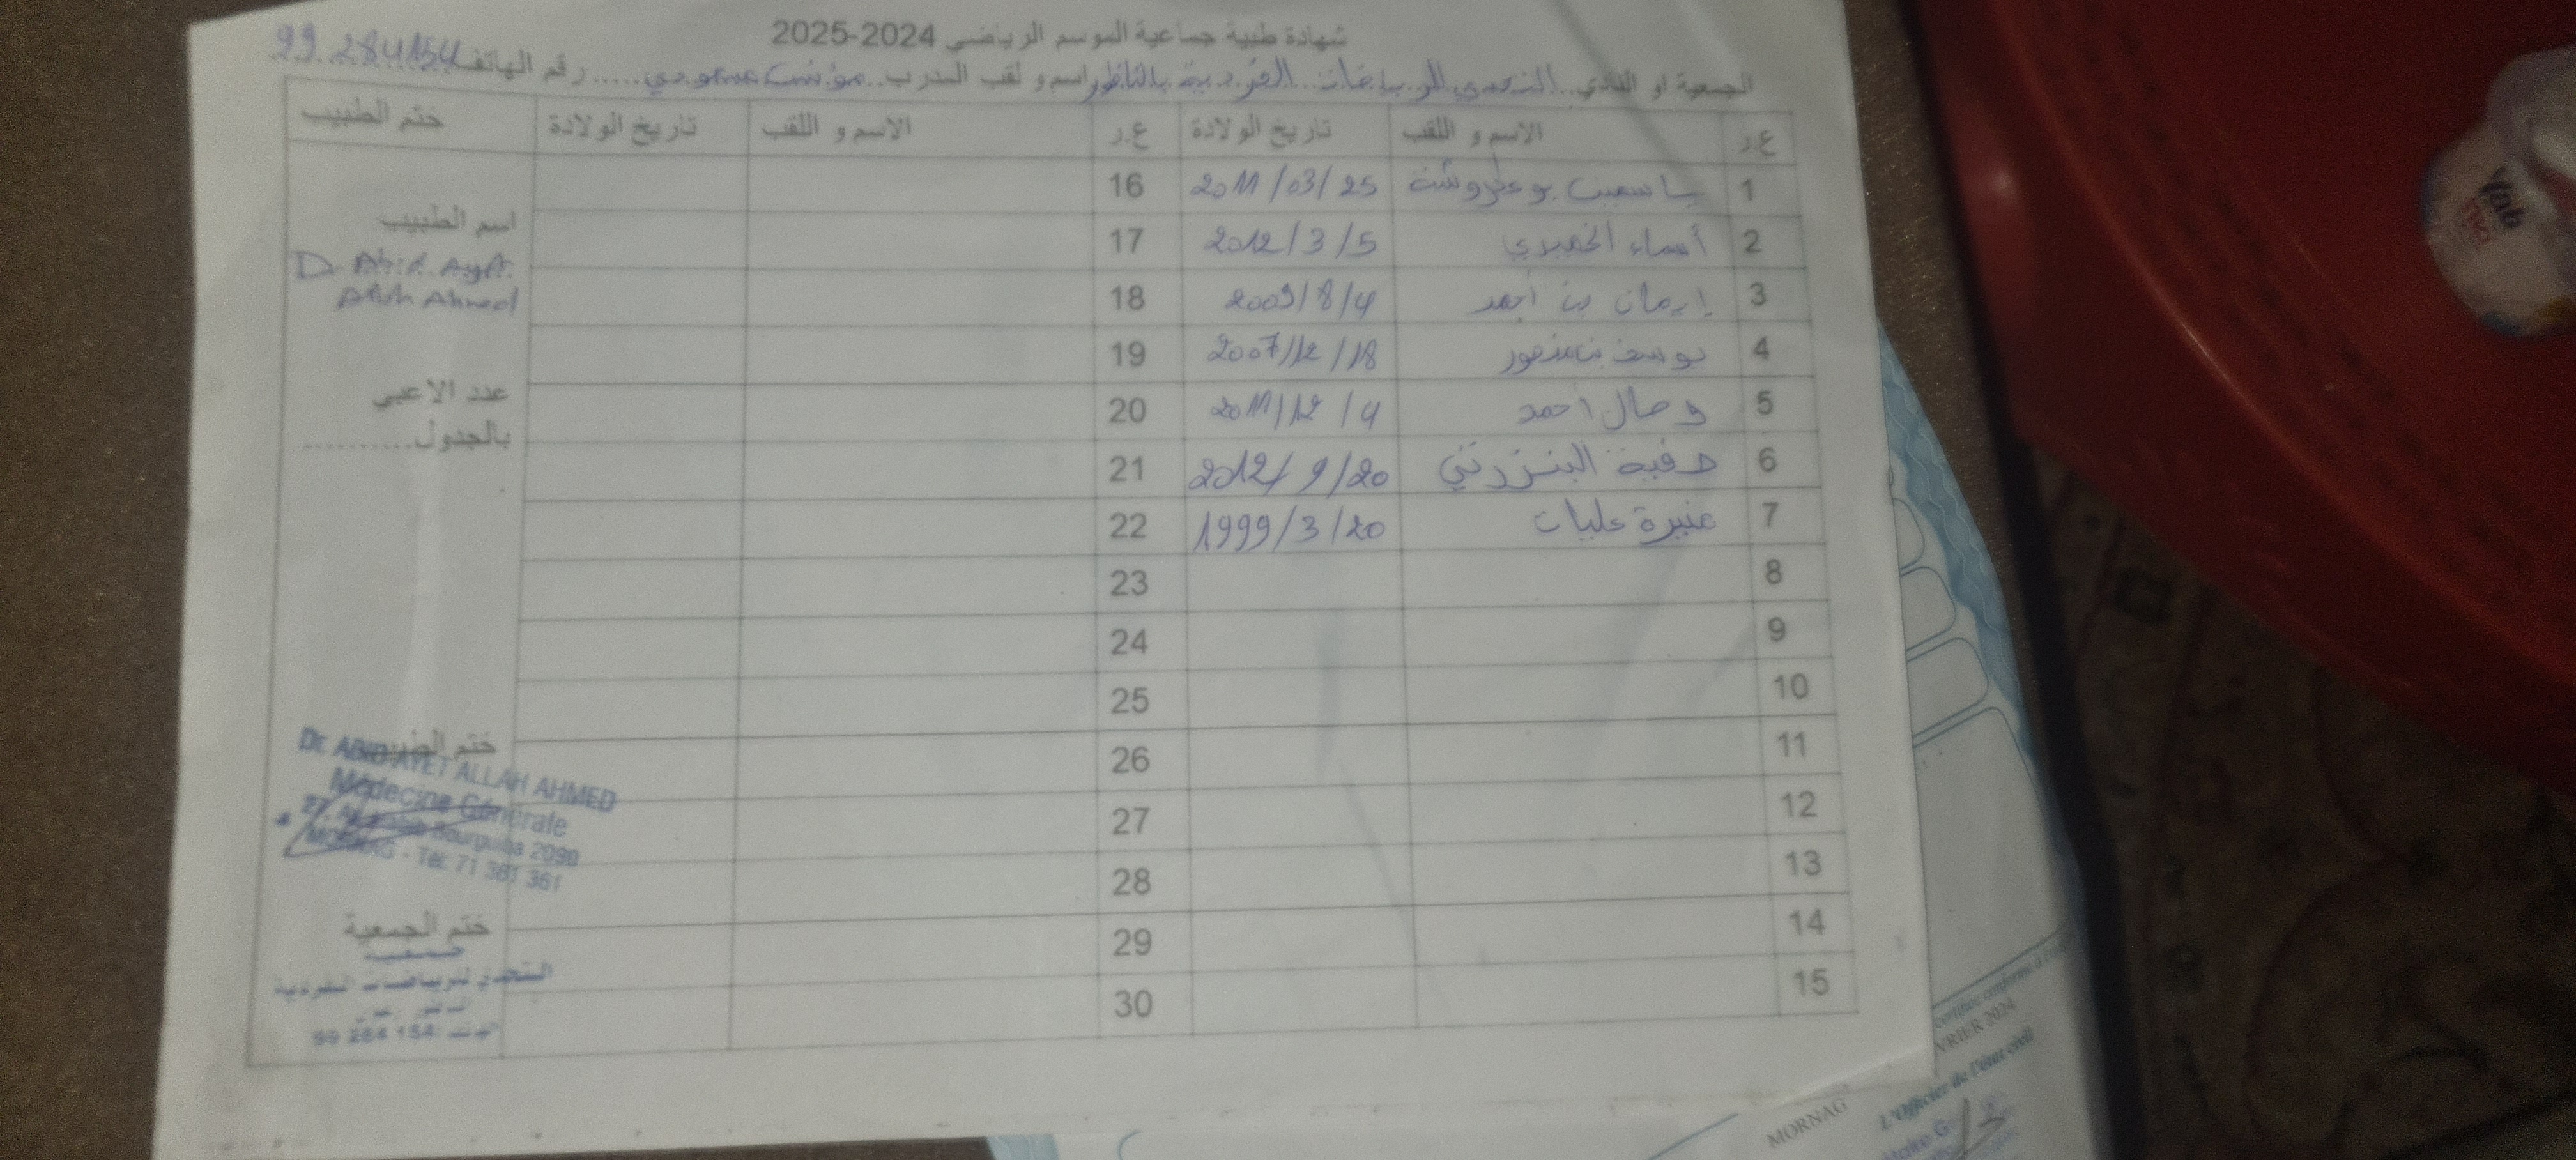 شهادة طبية جماعية الموسم الرياضي 2024-2025
الجمعية او النادي التحدي للرياضات الفردية بالناظور اسم و لقب المدرب مؤنس عمودي رقم الهاتف 99.284154
ع.ر الاسم و اللقب تاريخ الولادة ع.ر الاسم و اللقب تاريخ الولادة ختم الطبيب
1 ياسمين بوعكروشة 2011/03/25 16
2 أسماء الخميري 2012/3/5 17
3 إيمان بن أحمد 2009/8/4 18
4 يوسف بن منصور 2007/12/18 19
5 وصال أحمد 2011/12/4 20
6 صفية البنزرتي 2012/9/20 21
7 منيرة عليات 1999/3/20 22
8 23
9 24
10 25
11 26
12 27
13 28
14 29
15 30
اسم الطبيب
Dr Abid Ayet
Allah Ahmed
عدد الاعبي
بالجدول..........
ختم الطبيب
Dr. ABID AYET ALLAH AHMED
Médecine Générale
27, Av. Habib Bourguiba 2090
MORNAG - Tél: 71 361 361
ختم الجمعية
جمعية
التحدي للرياضات الفردية
99 284 154
certifiée conforme à
VRIER 2024
L'Officier de l'état civil
MORNAG